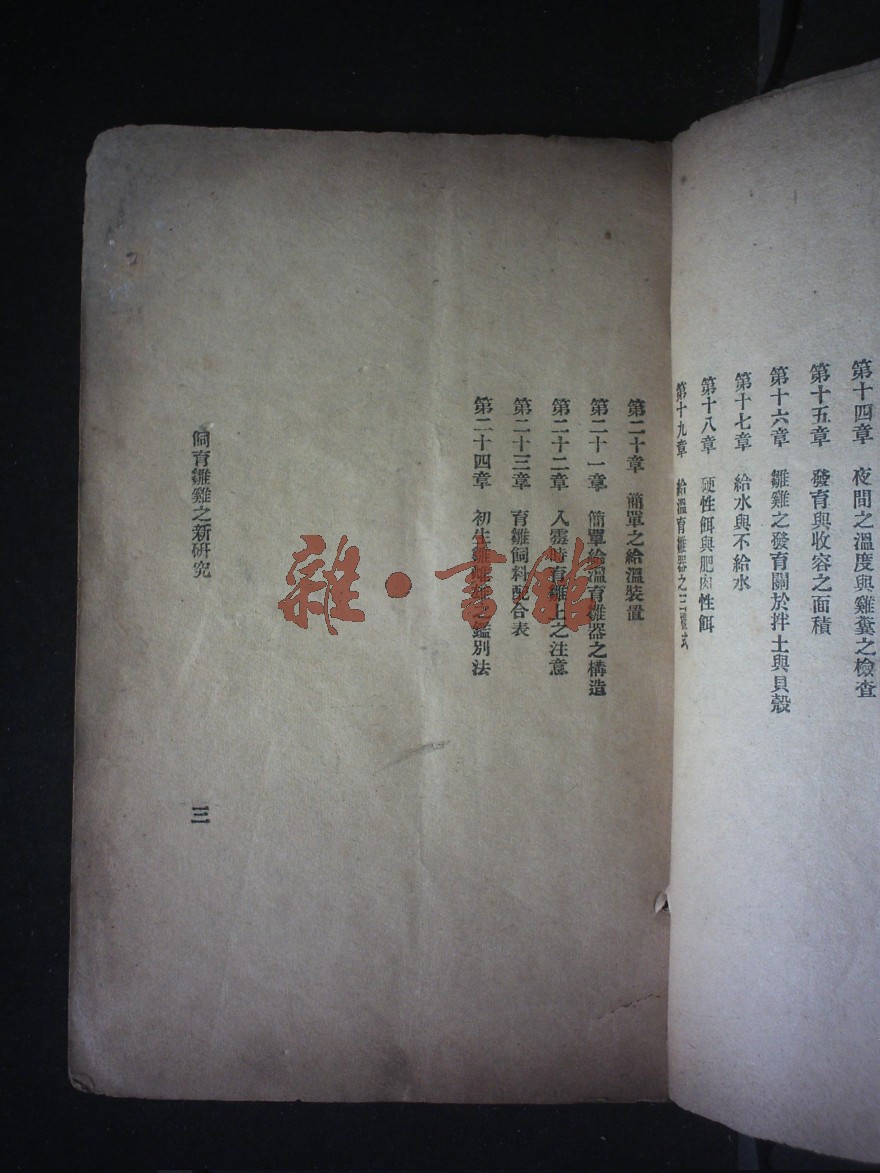 第十四章　夜間之溫度與雞糞之檢查
第十五章　發育與收容之面積
第十六章　雛雞之發育關於拌土與貝殼
第十七章　給水與不給水
第十八章　硬性餌與肥肉性餌
第十九章　給溫育雛器之三樣式
第二十章　簡單之給溫裝置
第二十一章　簡單給溫育雛器之構造
第二十二章　入雲時育雛上之注意
第二十三章　育雛飼料配合表
第二十四章　初生雛雌雄之鑑別法
飼育雛雞之新研究
三
雜·書館